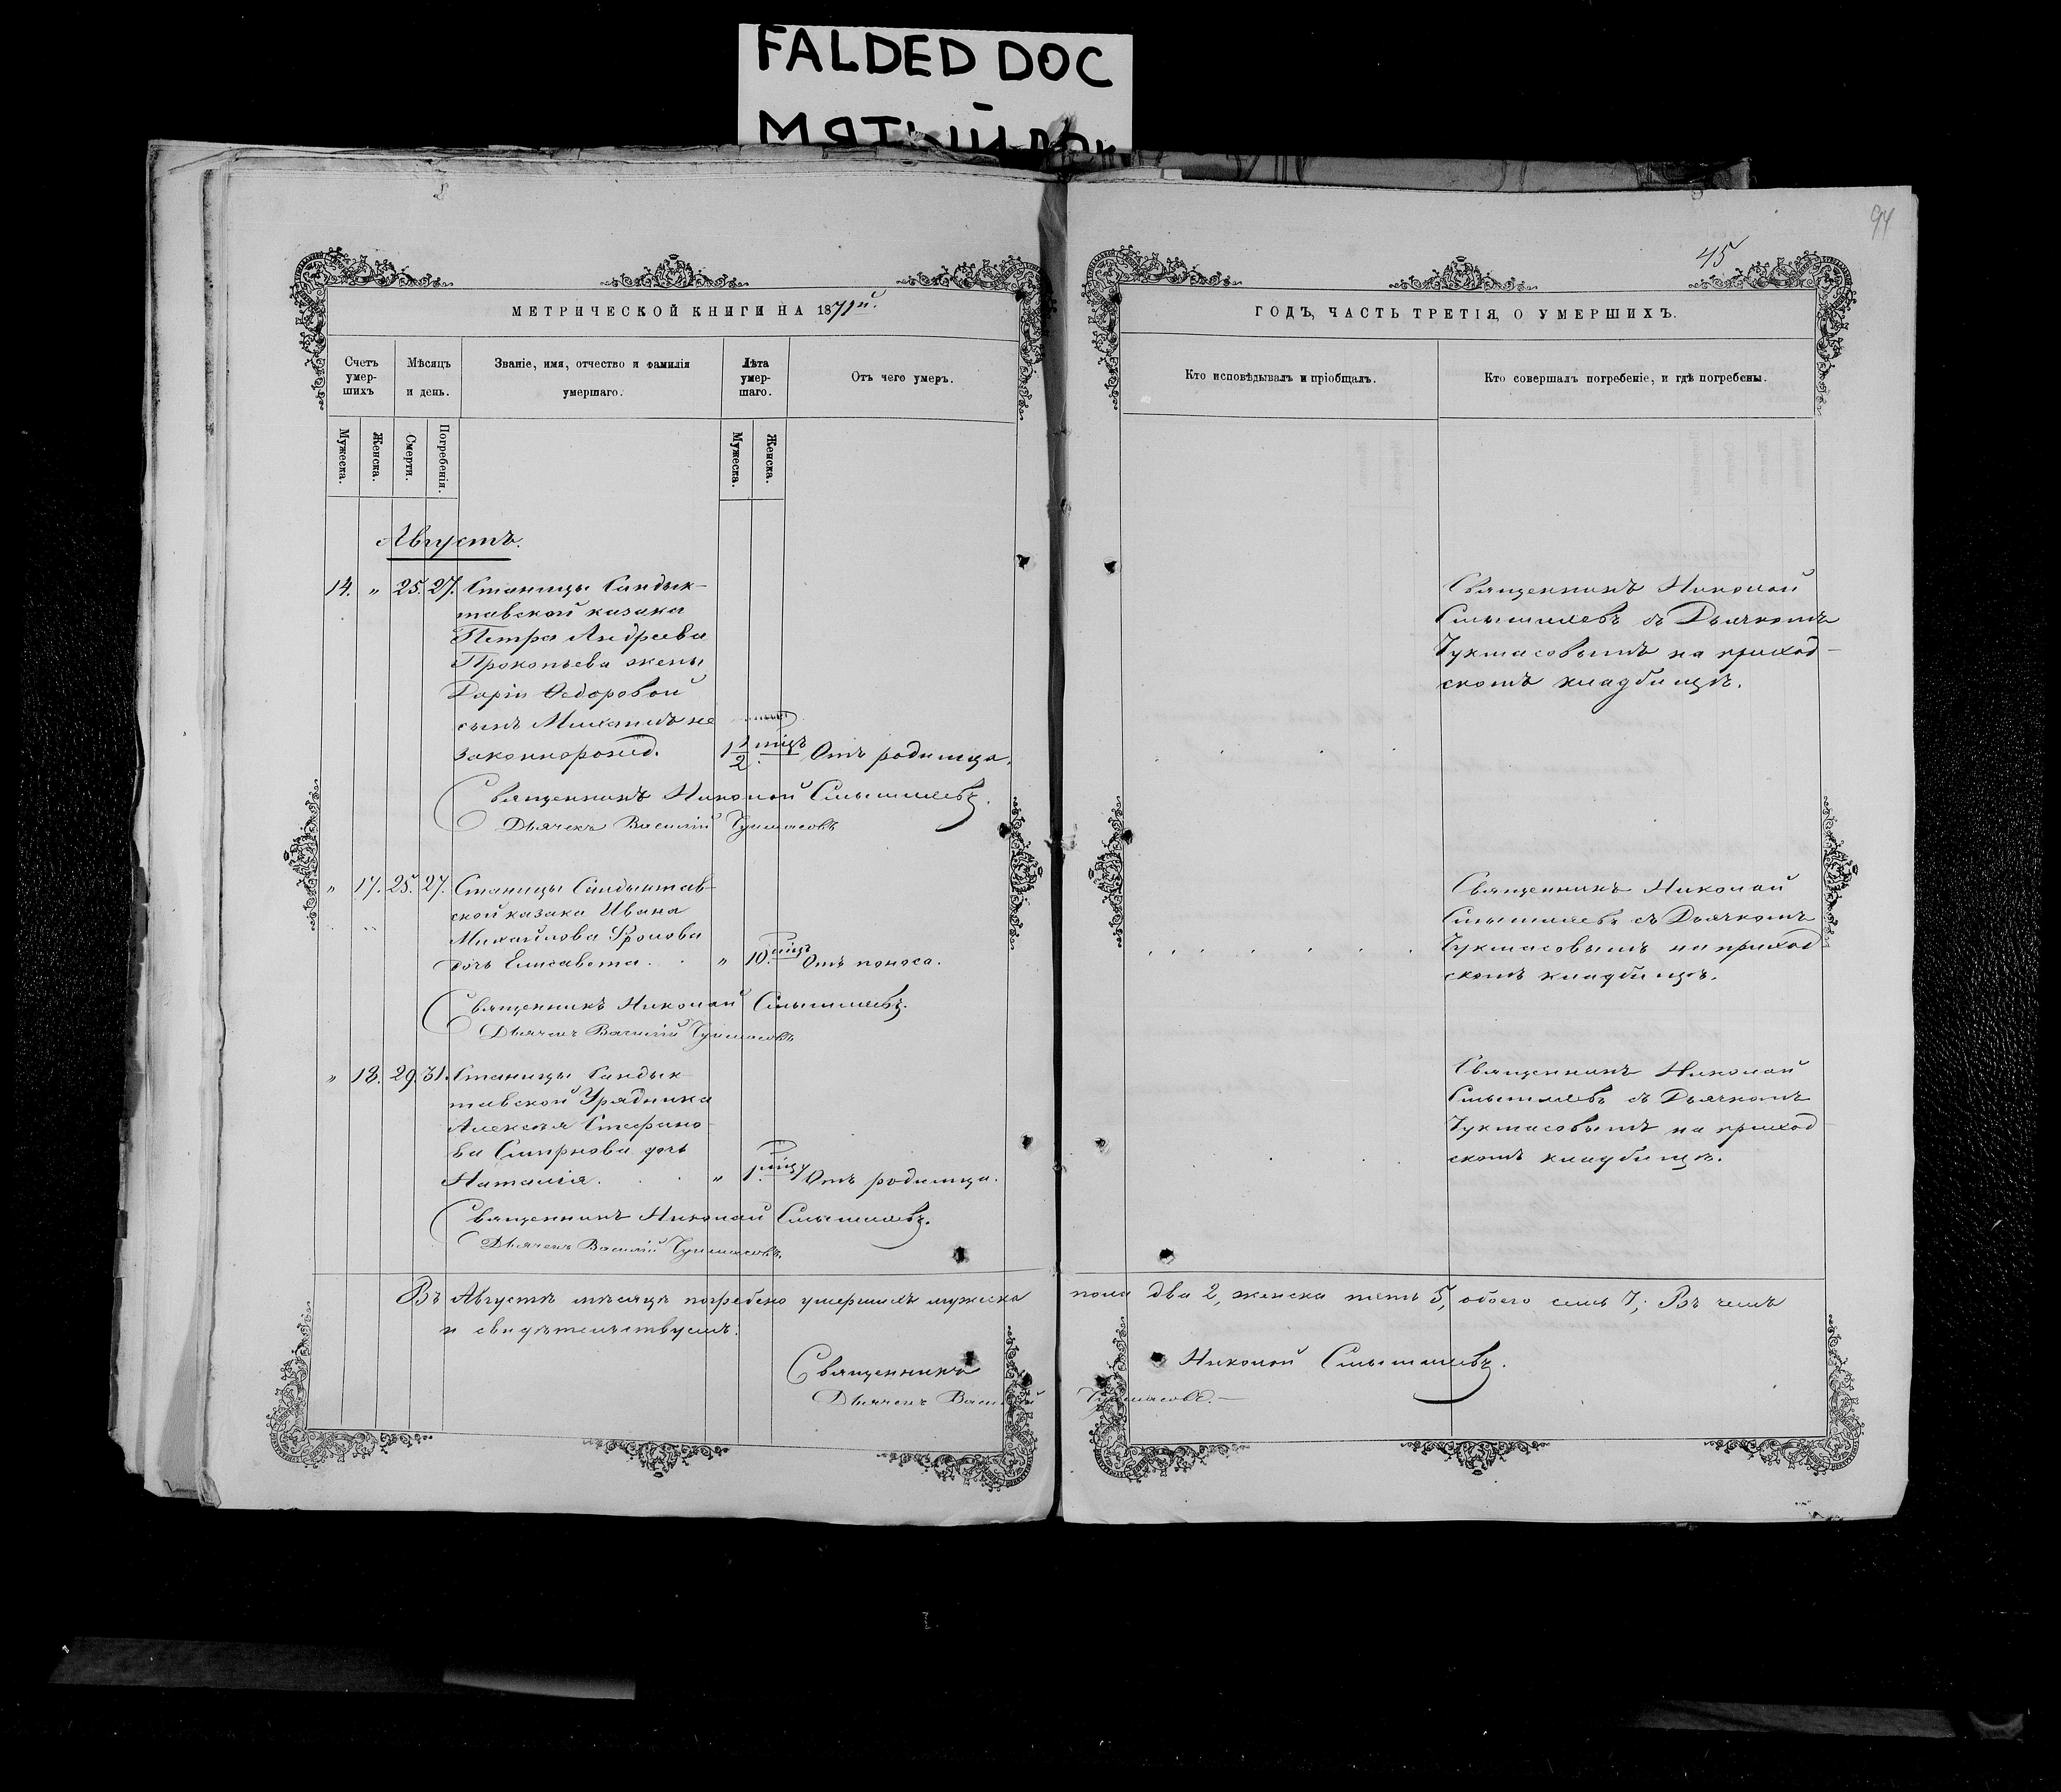 FALDED DOC
МЯТЫЙ ДОК
94
45
МЕТРИЧЕСКОЙ КНИГИ НА 1871й.
ГОДЪ, ЧАСТЬ ТРЕТІЯ, О УМЕРШИХЪ.
Счетъ умер-шихъ
Мѣсяцъ и день.
Званіе, имя, отчество и фамилія умершаго.
Лѣта умер-шаго.
Отъ чего умеръ.
Кто исповѣдывалъ и пріобщалъ.
Кто совершалъ погребеніе, и гдѣ погребены.
Мужеска.
Женска.
Смерти.
Погребенія.
Мужеска.
Женска.
Августъ.
14. " 25. 27. Станицы Сандык-
тавской казака
Петра Андреева
Прокопьева жены
Дарiи Ѳедоровой
сынъ Михаилъ не
законнорожд. 1 1/2 мѣц. Отъ родимца.
Священникъ Николай
Смышляевъ съ Дьячкомъ
Чукмасовымъ на приход-
скомъ кладбищѣ.
Священникъ Николай Смышляевъ.
Дьячекъ Василій Чукмасовъ
" 17. 25. 27. Станицы Сандыктав-
ской казака Ивана
Михайлова Фролова
дочь Елисавета. " 10. мѣц. Отъ поноса.
Священникъ Николай
Смышляевъ съ Дьячкомъ
Чукмасовымъ на приход
скомъ кладбищѣ.
Священникъ Николай Смышляевъ.
Дьячекъ Василій Чукмасовъ
" 18. 29. 31. Станицы Сандык
тавской Урядника
Алексѣя Стефано-
ва Смирнова дочь
Наталія. " 1. мѣц. Отъ родимца.
Священникъ Николай
Смышляевъ съ Дьячкомъ
Чукмасовымъ на приход
скомъ кладбищѣ.
Священникъ Николай Смышляевъ.
Дьячекъ Василій Чукмасовъ.
Въ Августѣ мѣсяцѣ погребено умершихъ мужеска пола два 2, женска пять 5, обоего семь 7; Въ чемъ
и свидѣтельствуемъ:
Священникъ Николай Смышляевъ.
Дьячекъ Василій Чукмасовъ.